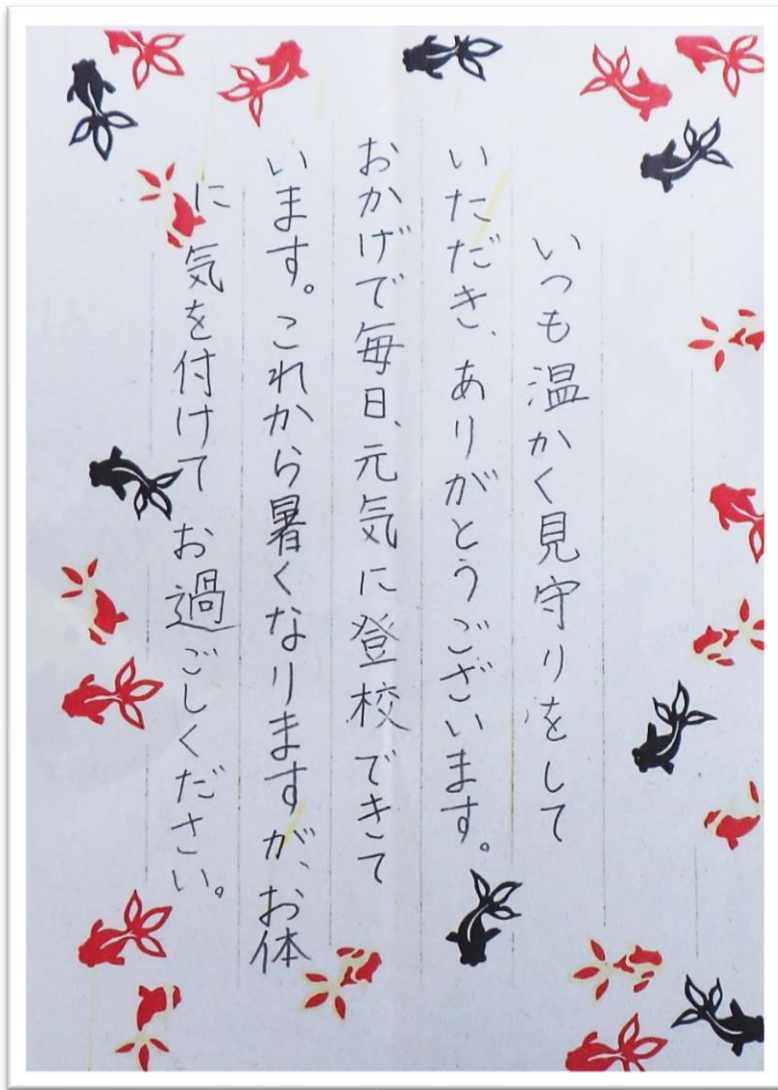 いつも温かく見守りをして
いただき、ありがとうございます。
おかげで毎日、元気に登校できて
います。これから暑くなりますが、お体
に気を付けてお過ごしください。